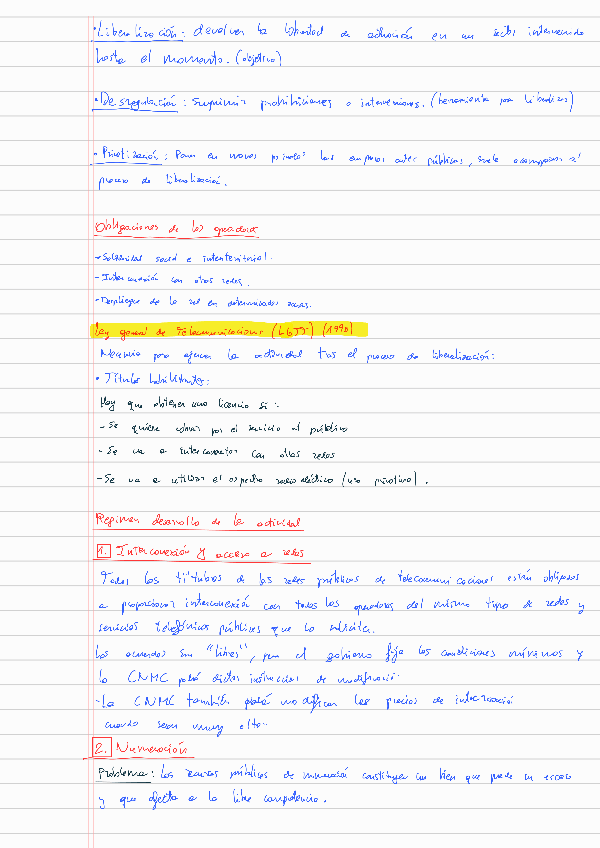 • Liberalización: devolver la libertad de actuación en un sector intervenido
hasta el momento. (objetivo)
• Desregulación: Suprimir prohibiciones o intervenciones. (herramienta para liberalizar)
• Privatización: Poner en manos privadas las empresas antes públicas, suele acompañar al
proceso de liberalización.
Obligaciones de los operadores
- Solidaridad social e interterritorial.
- Interconexión con otras redes.
- Despliegue de la red en determinadas zonas.
Ley general de Telecomunicaciones (LGTT) (1998)
Necesario para ejercer la actividad tras el proceso de liberalización:
• Títulos habilitantes:
Hay que obtener una licencia si:
- Se quiere cobrar por el servicio al público
- Se va a interconectar con otras redes
- Se va a utilizar el espectro radioeléctrico (uso privativo).
Regimen desarrollo de la actividad
1. Interconexión y acceso a redes
Todos los titulares de las redes públicas de telecomunicaciones están obligados
a proporcionar interconexión con todos los operadores del mismo tipo de redes y
servicios telefónicos públicos que lo soliciten.
Los acuerdos son "libres", pero el gobierno fija las condiciones mínimas y
la CNMC podrá dictar instrucciones de modificación
- La CNMC también podrá modificar los precios de interconexión
cuando sean muy altos.
2. Numeración
Problema: Los recursos públicos de numeración constituyen un bien que puede ser escaso
y que afecta a la libre competencia.